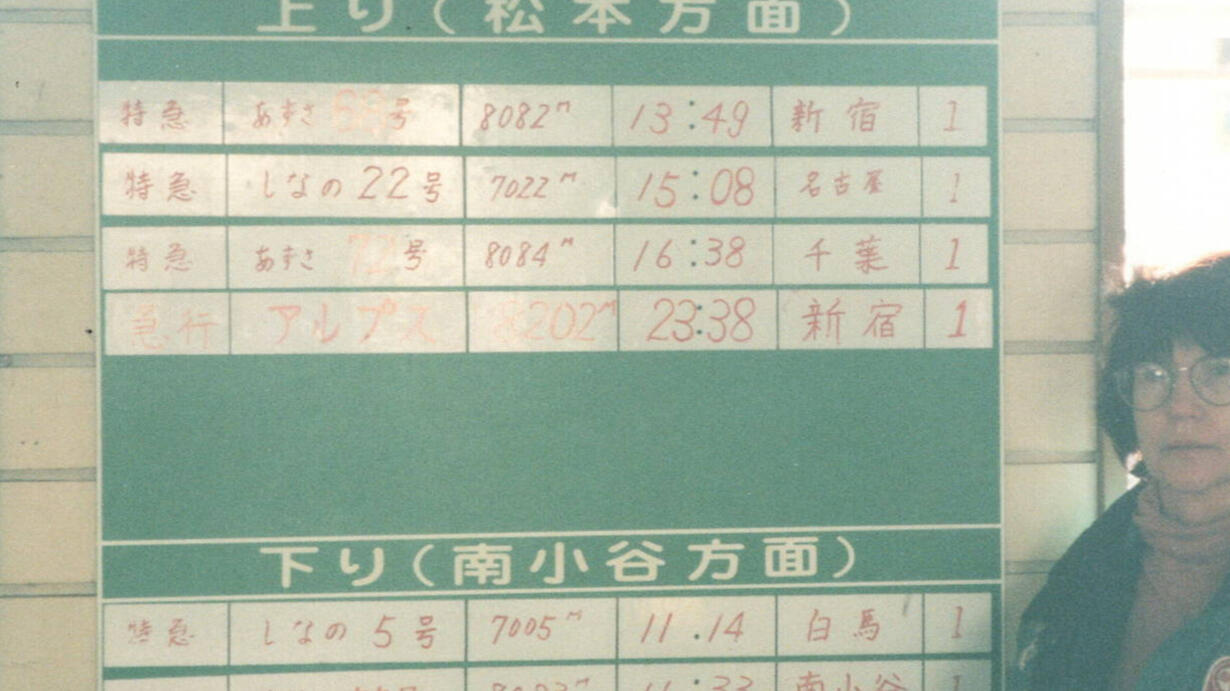 上り(松本方面)
特急 あずさ 号 8082M 13:49 新宿 1
特急 しなの 22号 7022M 15:08 名古屋 1
特急 あずさ 72号 8084M 16:38 千葉 1
急行 アルプス 8202M 23:38 新宿 1
下り(南小谷方面)
特急 しなの 5号 7005M 11.14 白馬 1
南小谷 1